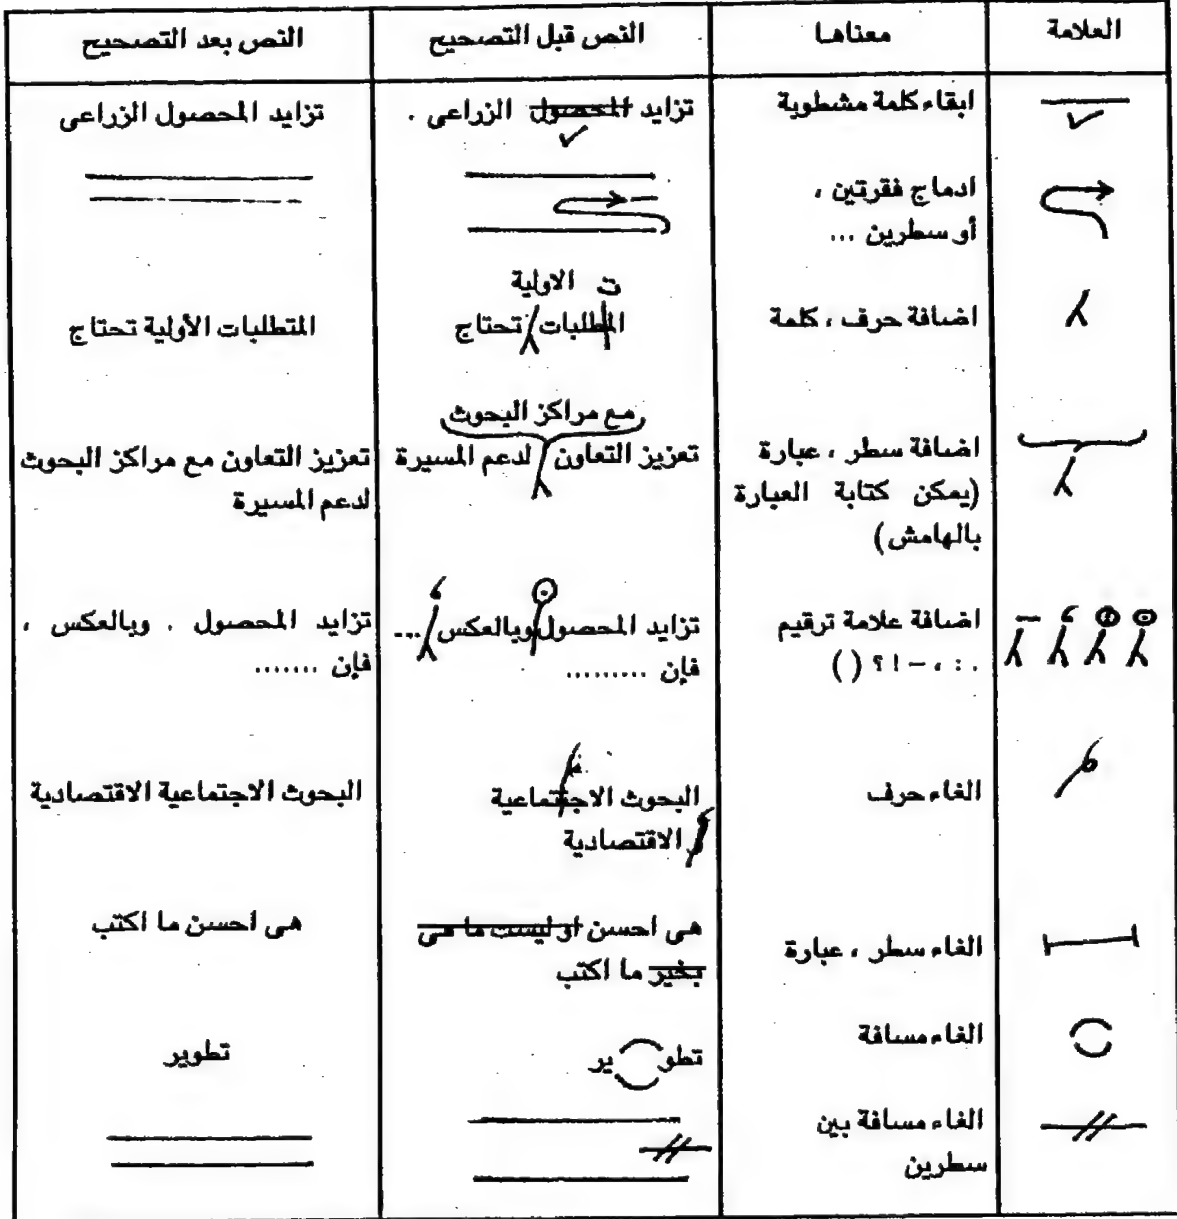 العلامة
معناها
النص قبل التصحيح
النص بعد التصحيح
ابقاء كلمة مشطوبة
تزايد المحصول الزراعى .
تزايد المحصول الزراعى
ادماج فقرتين ،
أو سطرين ...
اضافة حرف ، كلمة
ت الاولية
المطلبات تحتاج
المتطلبات الأولية تحتاج
اضافة سطر ، عبارة
(يمكن كتابة العبارة
بالهامش)
مع مراكز البحوث
تعزيز التعاون لدعم المسيرة
تعزيز التعاون مع مراكز البحوث
لدعم المسيرة
اضافة علامة ترقيم
. : ، – ! ؟ ( )
تزايد المحصول وبالعكس ...
فإن .........
تزايد المحصول . وبالعكس ،
فإن .......
الغاء حرف
البحوث الاجتماعية
و الاقتصادية
البحوث الاجتماعية الاقتصادية
الغاء سطر ، عبارة
هى احسن او ليست ما هى
بخير ما اكتب
هى احسن ما اكتب
الغاء مسافة
تطو ير
تطوير
الغاء مسافة بين
سطرين